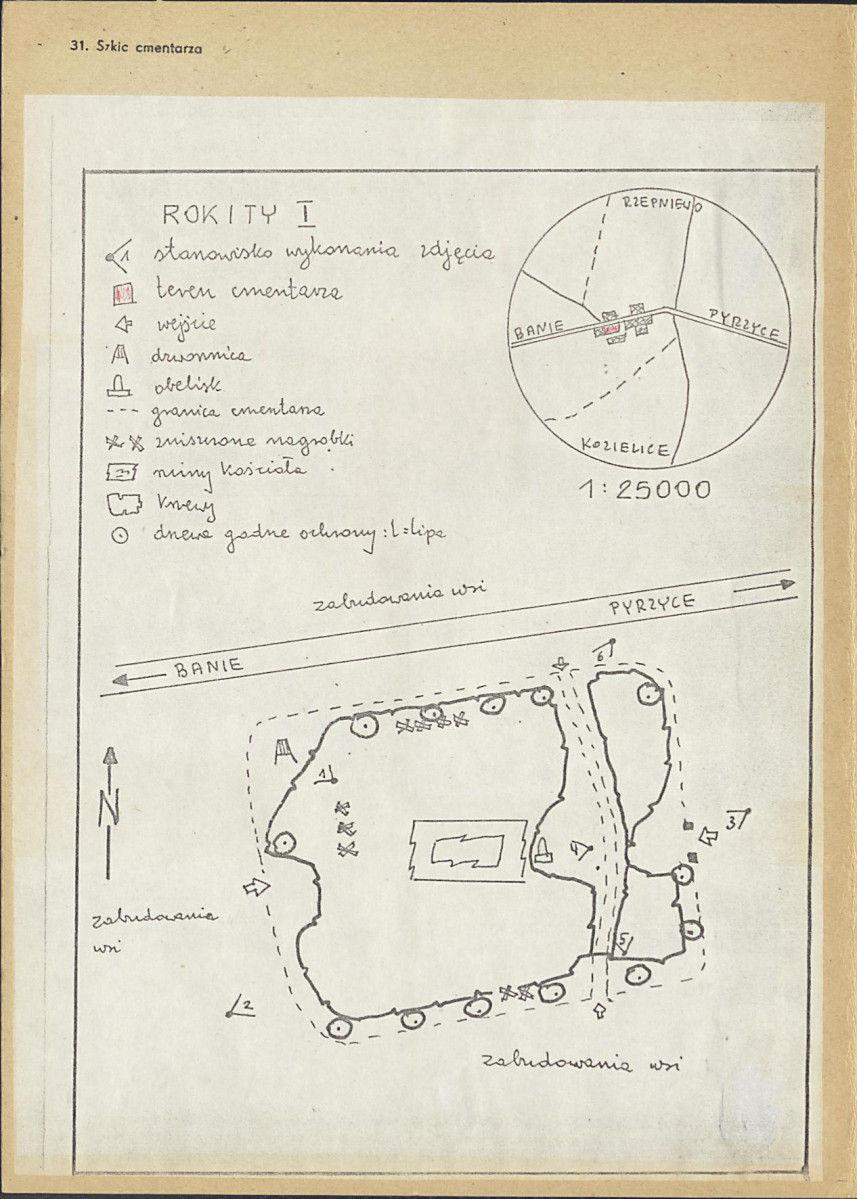 31. Szkic cmentarza
ROKITY I
1 stanowisko wykonania zdjęcia
teren cmentarza
wejście
dzwonnica
obelisk
granica cmentarza
zniszczone nagrobki
ruiny kościoła
krzewy
drzewa godne ochrony: L=lipa
RZEPNIEWO
BANIE
PYRZYCE
KOZIELICE
1:25000
zabudowania wsi
PYRZYCE
BANIE
6
1
N
3
4
zabudowania
wsi
5
2
zabudowania wsi